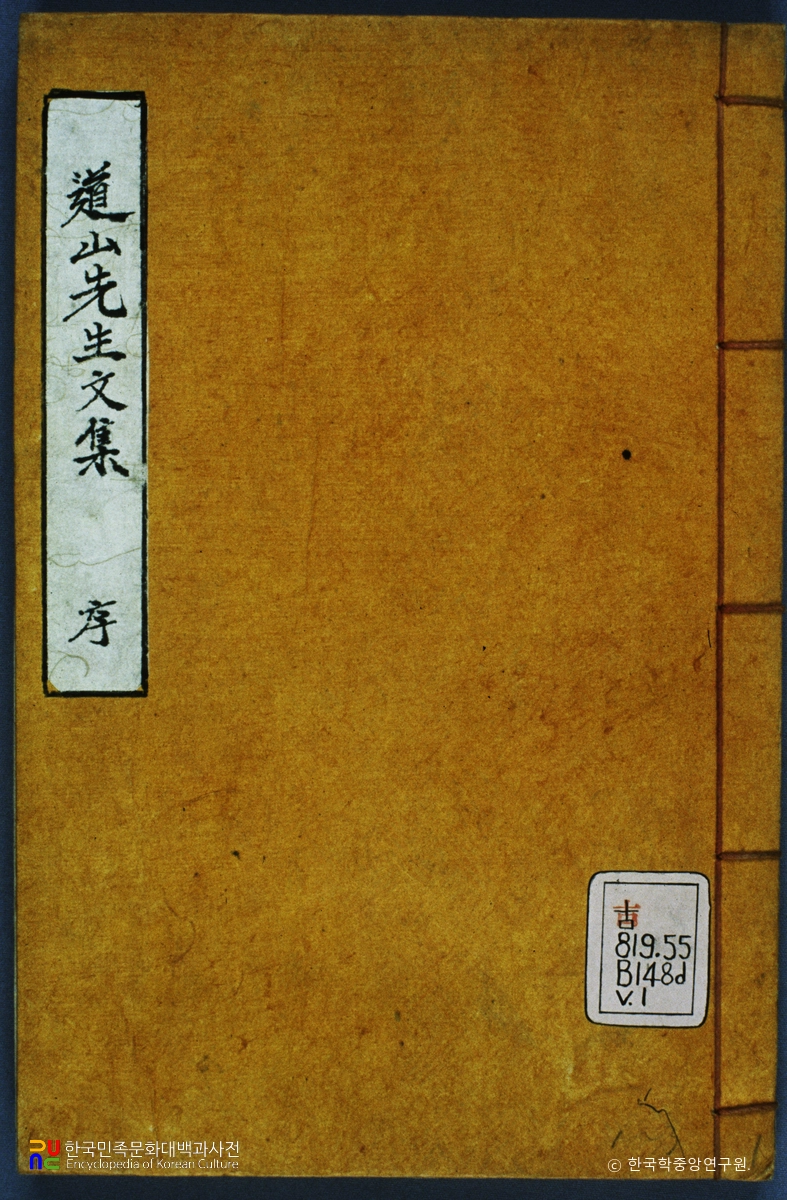 道山先生文集 序
古
819.55
B148d
v.1
한국민족문화대백과사전
Encyclopedia of Korean Culture
© 한국학중앙연구원